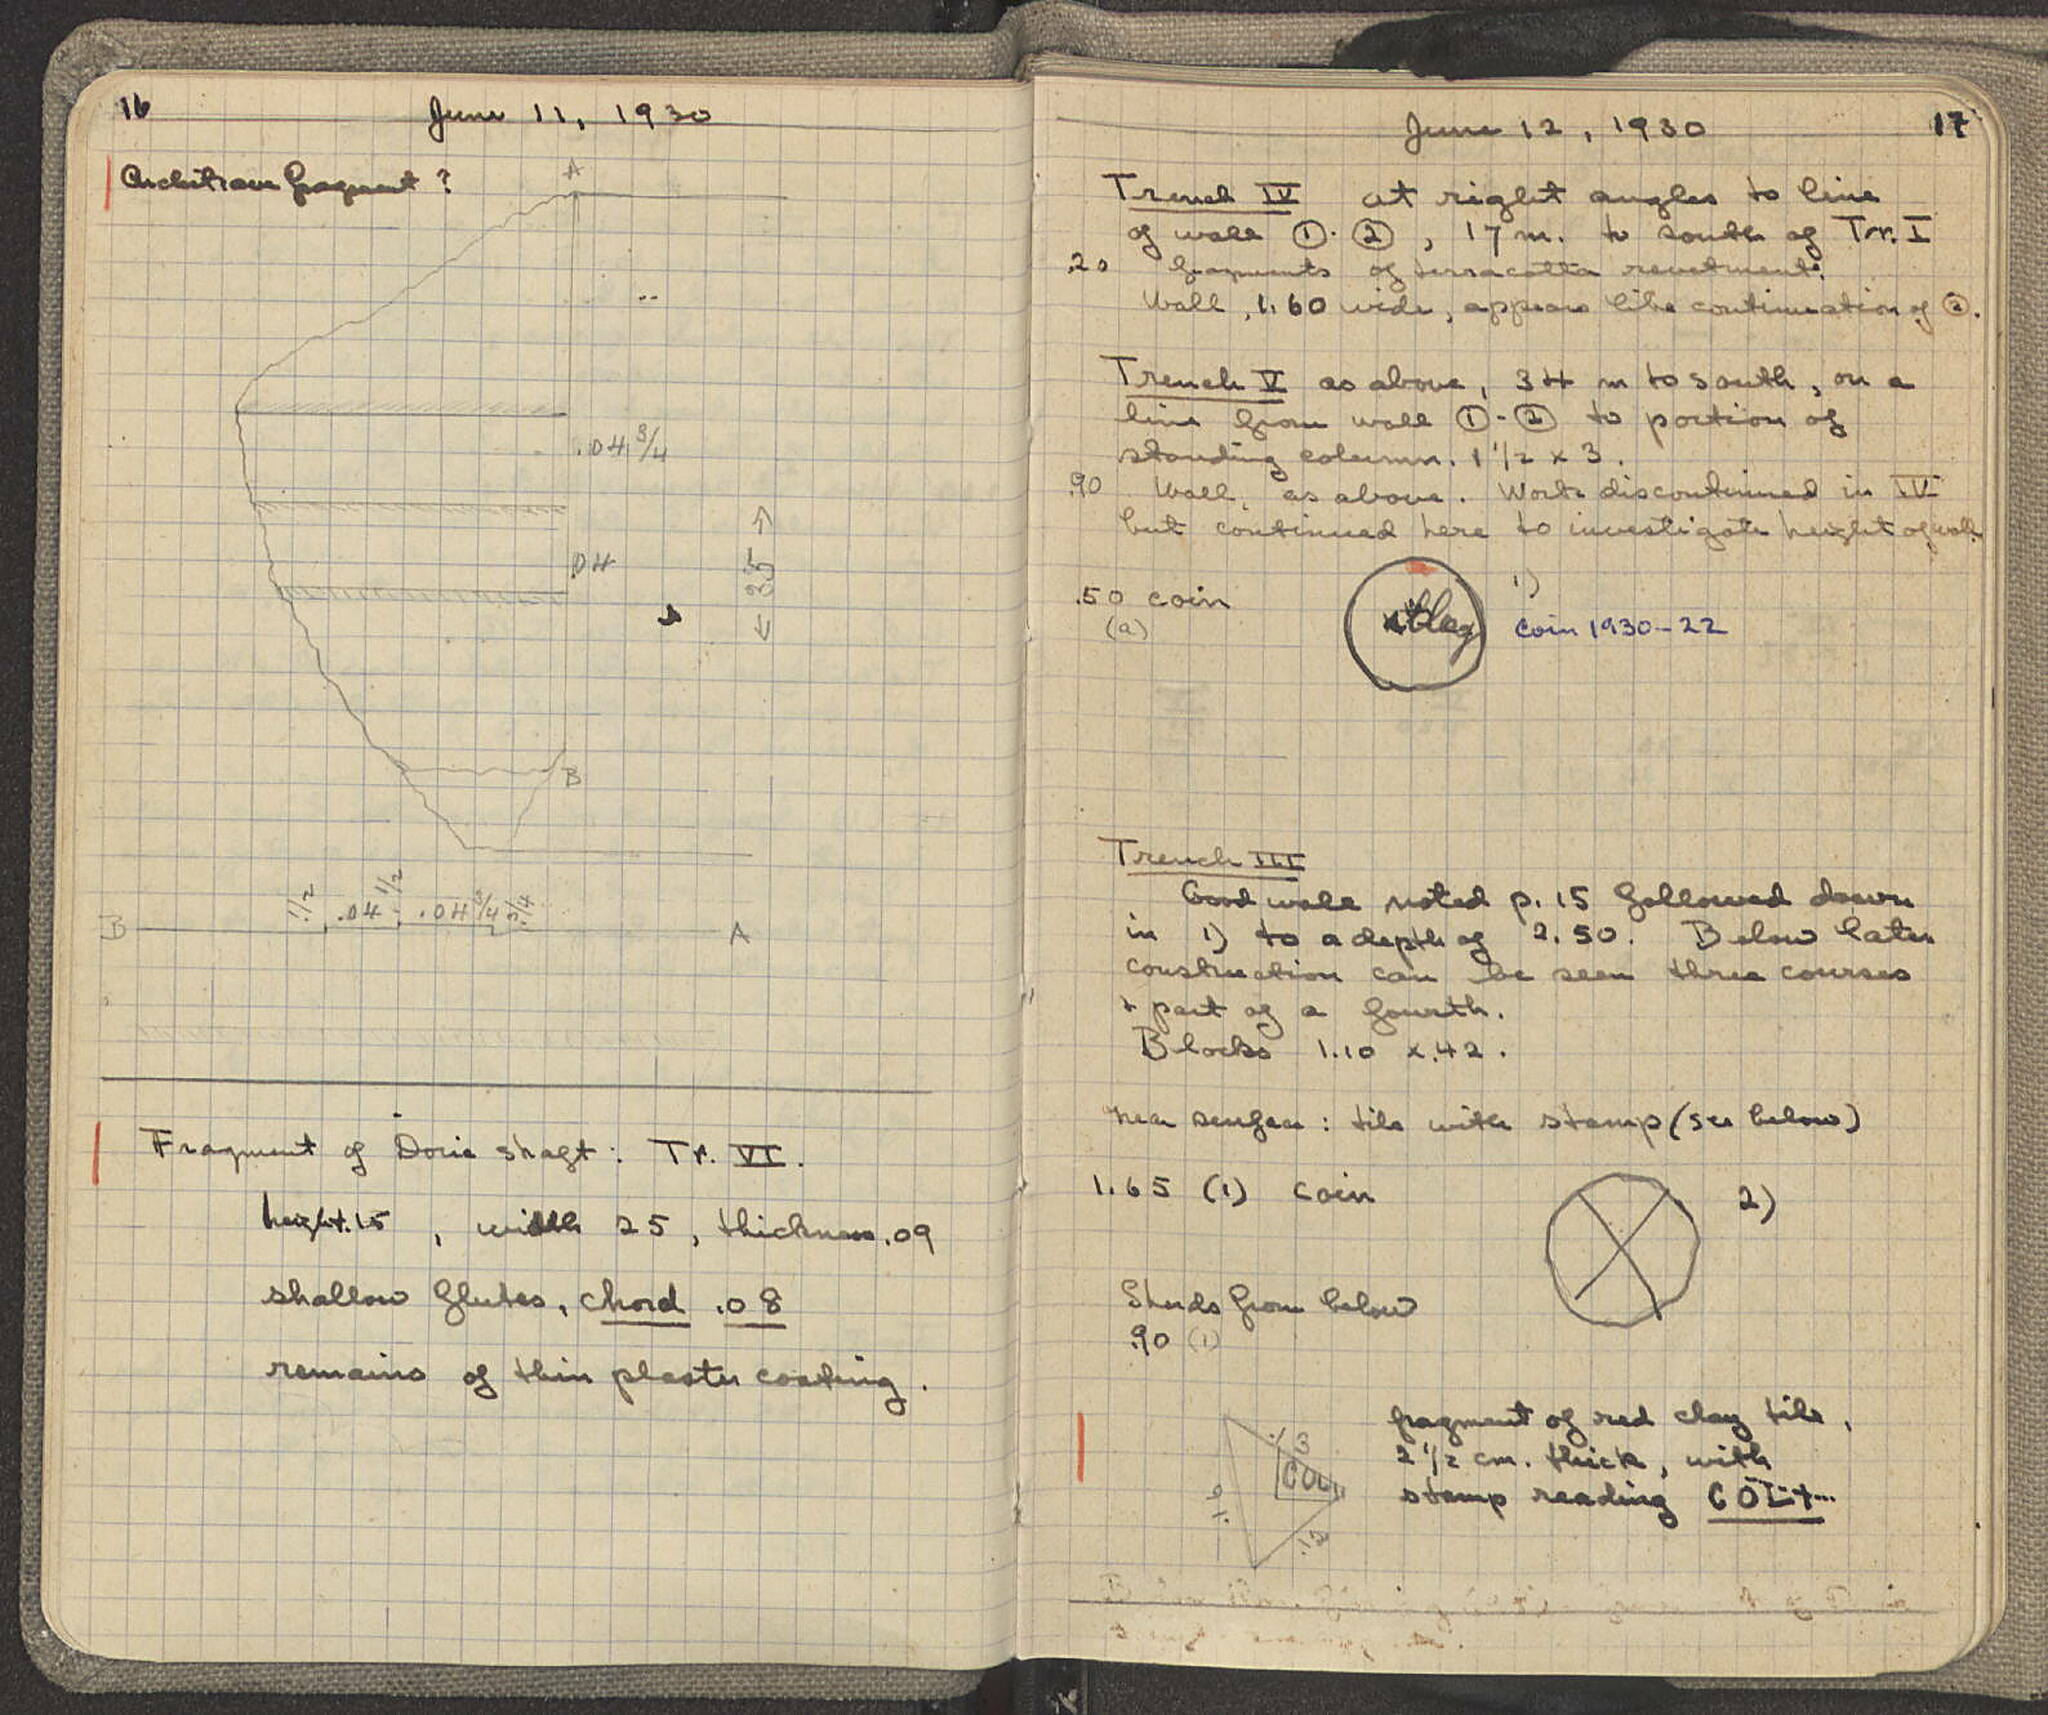 16
June 11, 1930
Architrave fragment ?
A
.04 3/4
.04
.35
B
1/2 .04 1/2 .04 3/4 3/4
B A
Fragment of Doric shaft: Tr. VI.
height .15, width 25, thickness .09
shallow flutes, chord .08
remains of thin plaster coating.
June 12, 1930
17
Trench IV at right angles to line
of wall ①-②, 17 m. to south of Tr. I
.20 fragments of terracotta revetment.
Wall, 1.60 wide, appears like continuation of ②.
Trench V as above, 34 m to south, on a
line from wall ①-② to portion of
standing column. 1 1/2 x 3.
.90 Wall, as above. Work discontinued in IV
but continued here to investigate height of wall.
.50 coin
(a)
1)
Coin 1930-22
Trench III
Good wall noted p. 15 followed down
in 1) to a depth of 2.50. Below later
construction can be seen three courses
+ part of a fourth.
Blocks 1.10 x .42.
near surface: tile with stamp (see below)
1.65 (1) coin
2)
Sherds from below
.90 (1)
fragment of red clay tile,
2 1/2 cm. thick, with
stamp reading COL+...
.13
COL
.12